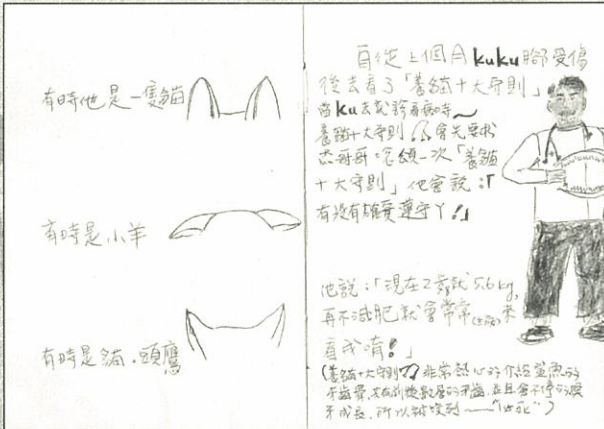 有時他是一隻貓
有時是小羊
有時是貓頭鷹
自從上個月kuku腳受傷
後去看了「養貓十大守則」
當ku去就診看病時～
養貓十大守則 會先要求
杰哥哥唸頌一次「養貓
十大守則」他會說：「
有沒有確實遵守丫！」
他說：「現在2歲就5.6kg,
再不減肥就會常常(生病)來
看我唷！」
(養貓十大守則 非常熱心的介紹鯊魚的
牙齒
牙成長，所以被咬到～～"必死")